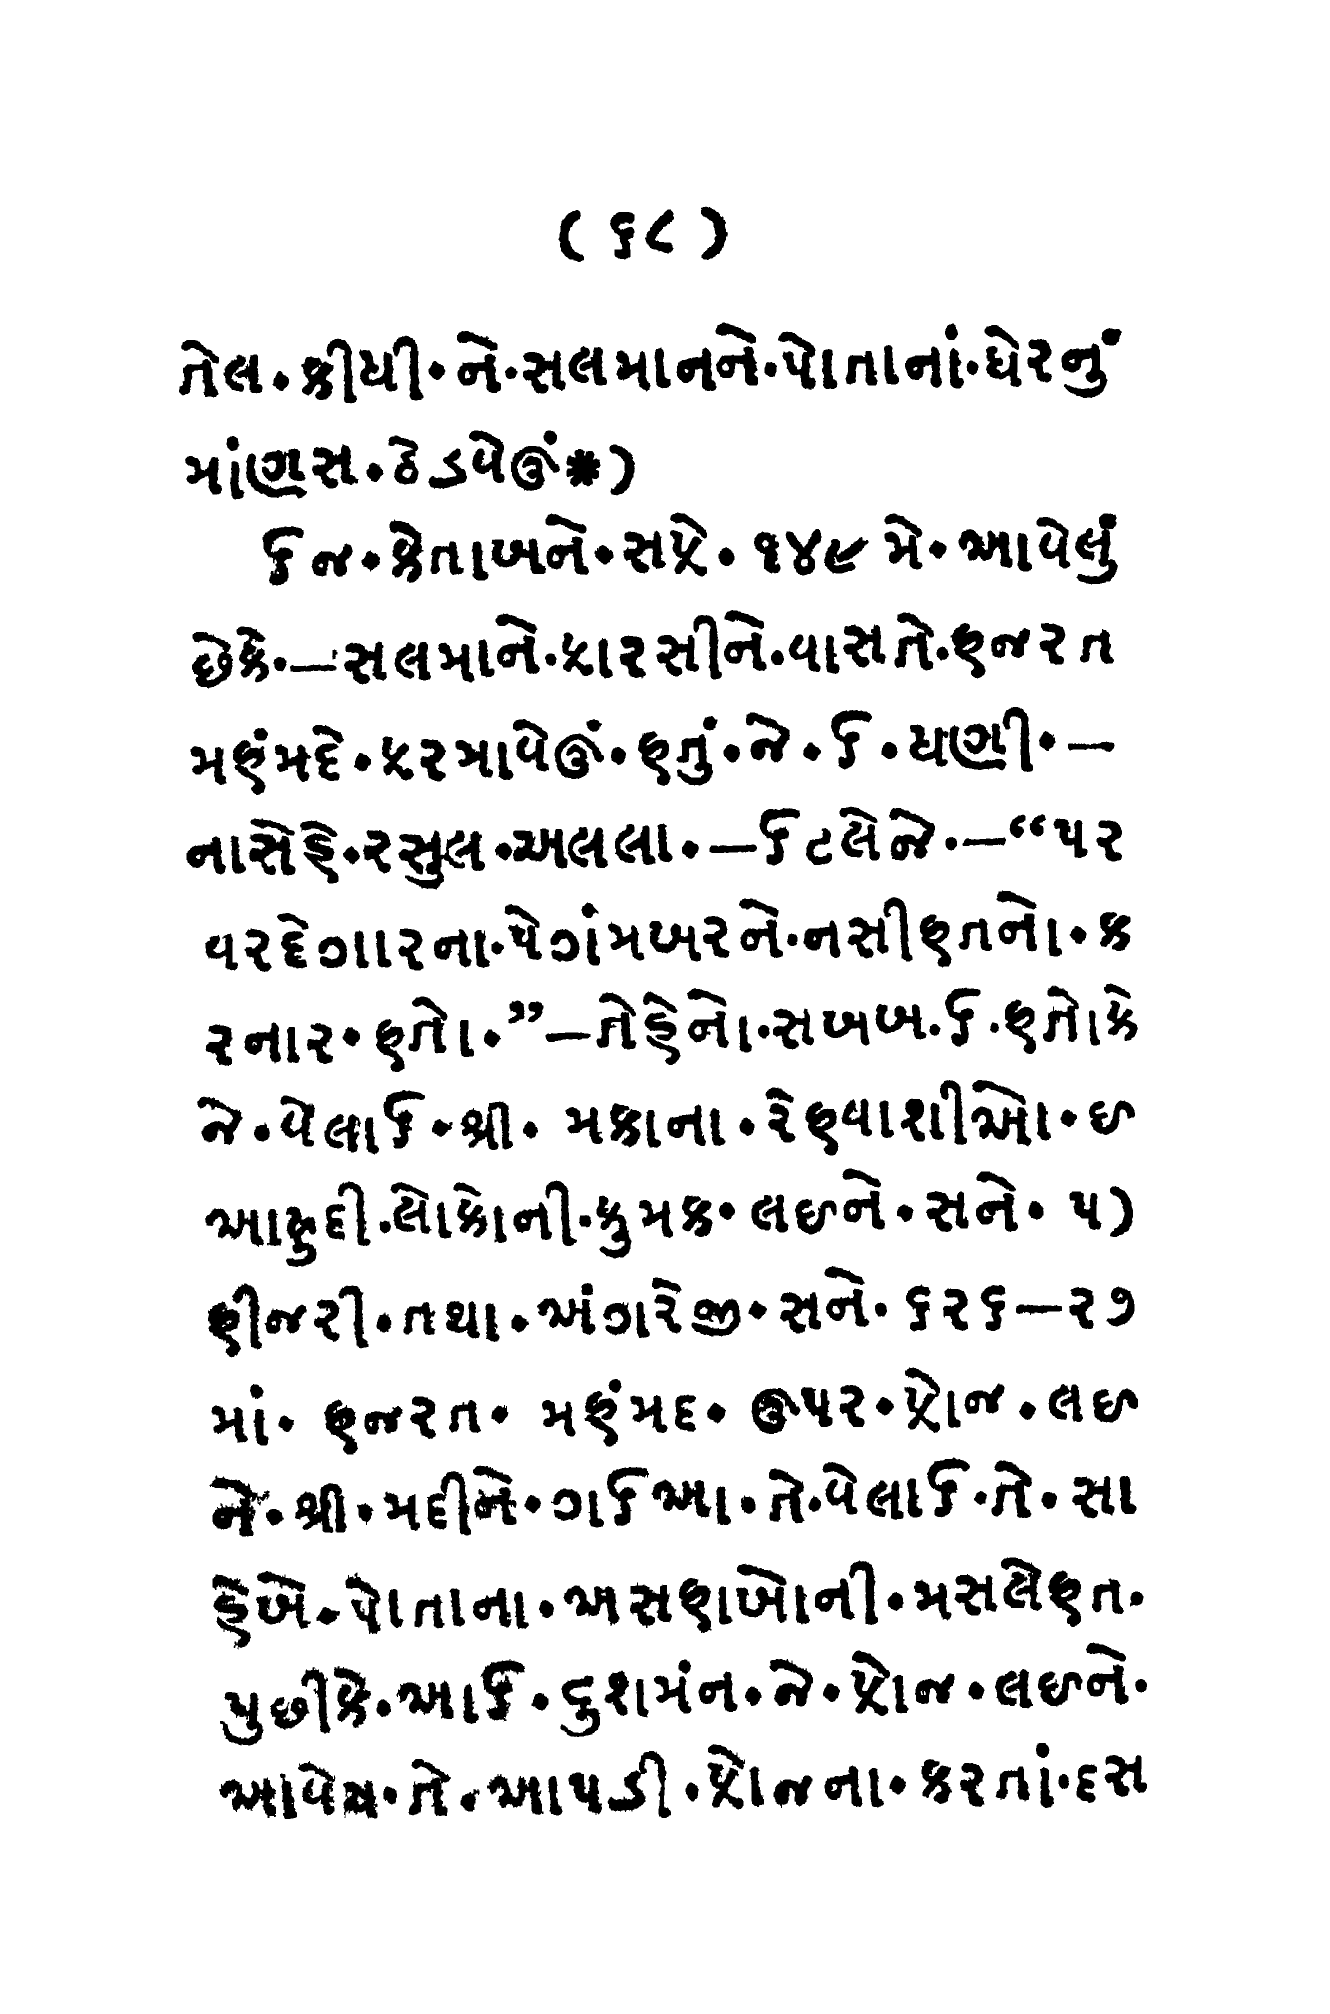 ( ૬૮ )
તેલ. કીધી. ને. સલમાનને. પોતાનાં. ઘેરનું
માંણસ. ઠેડવેઊં*)
એજ. કેતાબને. સફે. ૧૪૯ મે. આવેલું
છેકે.—સલમાને. ફારસીને. વાસતે. હજરત
મહંમદે. ફરમાવેઊં. હતું. જે. એ. ધણી.—
નાસેહે. રસુલ. અલલા.—એટલેજે.—“પર
વરદેગારના. પેગંમબરને. નસીહતનો. ક
રનાર. હતો.”—તેહેનો. સબબ. એ. હતોકે
જે. વેલાએ. શ્રી. મકાના. રેહવાશીઓ. ઈ
આહુદી. લોકોની. કુમક. લઈને. સને. ૫)
હીજરી. તથા. અંગરેજી. સને. ૬૨૬—૨૭
માં. હજરત. મહંમદ. ઉપર. ફોજ. લઈ
ને. શ્રી. મદીને. ગએઆ. તે. વેલાએ. તે. સા
હેબે. પોતાના. અસહાબોની. મસલેહત.
પુછીકે. આએ. દુશમંન. જે. ફોજ. લઈને.
આવેચ. તે. આપડી. ફોજના. કરતાં. દસ